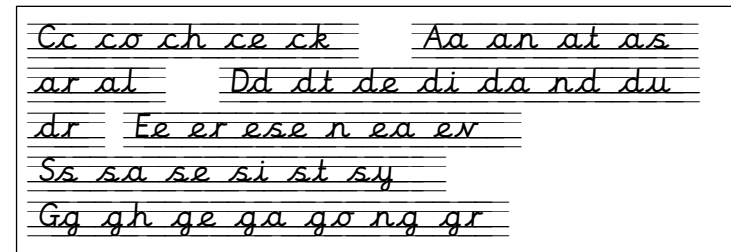 Cc co ch ce ck Aa an at as
ar al Dd dt de di da nd du
dr Ee er ese n ea ev
Ss sa se si st sy
Gg gh ge ga go ng gr